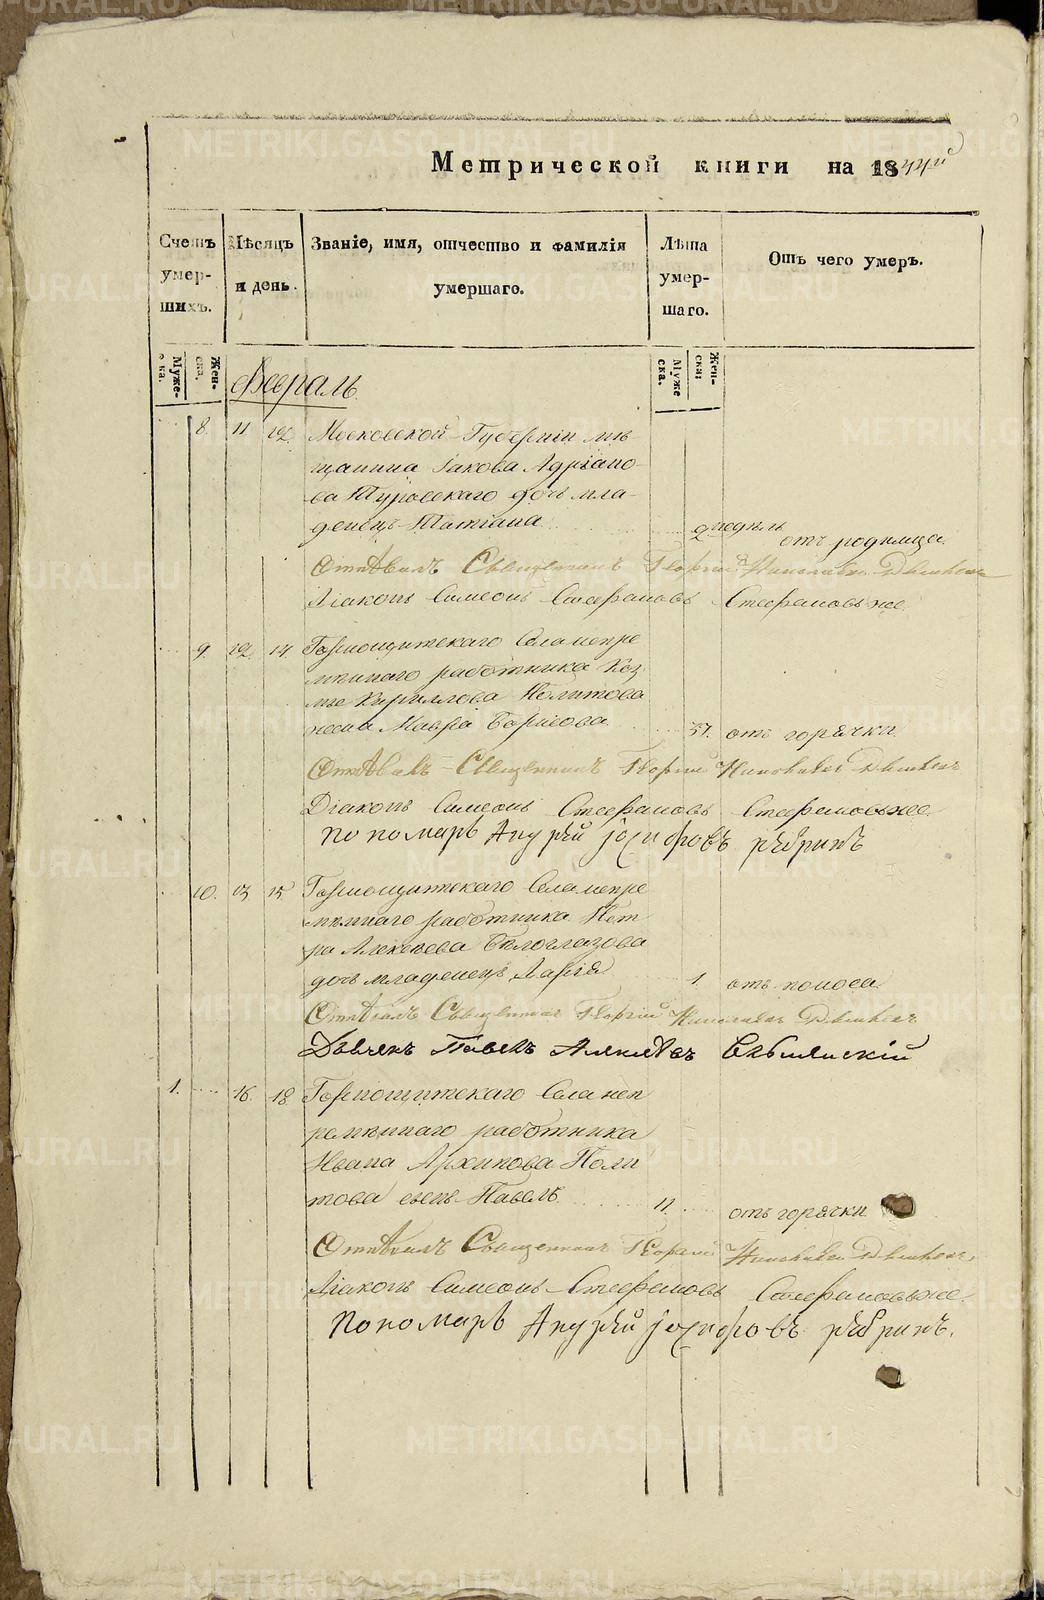 Метрической книги на 1844й
Счетъ умерших.
Мѣсяцъ и день.
Званіе, имя, отчество и фамилія умершаго.
Лѣта умершаго.
Отъ чего умеръ.
Мужеска.
Женска.
Мужеска.
Женска:
Февраль
8. 11 12. Московской Губерніи мѣ-
щанина Іакова Адріано-
ва Туровскаго дочь мла-
денецъ Татіана 2 недѣль отъ родимца
Отпѣвалъ Священникъ Георгій
Діаконъ Симеонъ Стефановъ Стефановъ же
9. 12. 14. Горнощитскаго Села непре
мѣннаго работника Коз
мы Кириллова Политова
жена Мавра Борисова 51. отъ горячки
Отпѣвалъ Священникъ Георгій Николаевъ
Діаконъ Симеонъ Стефановъ Стефановъ же
Пономарь Андрей Іосифовъ Рѣбринъ
10. 13 15 Горнощитскаго Села непре
мѣннаго работника Пет
ра Алексѣева Бѣлоглазова
дочь младенецъ Марія 1. отъ поноса
Отпѣвалъ Священникъ Георгій Николаевъ
Дьячекъ Павелъ Алексѣевъ
1. 16. 18. Горнощитскаго Села неп
ремѣннаго работника
Ивана Архипова Поли
това сынъ Павелъ 11. отъ горячки
Отпѣвалъ Священникъ Георгій Николаевъ
Діаконъ Симеонъ Стефановъ Стефановъ же
Пономарь Андрей Іосифовъ Рѣбринъ.
METRIKI.GASO-URAL.RU